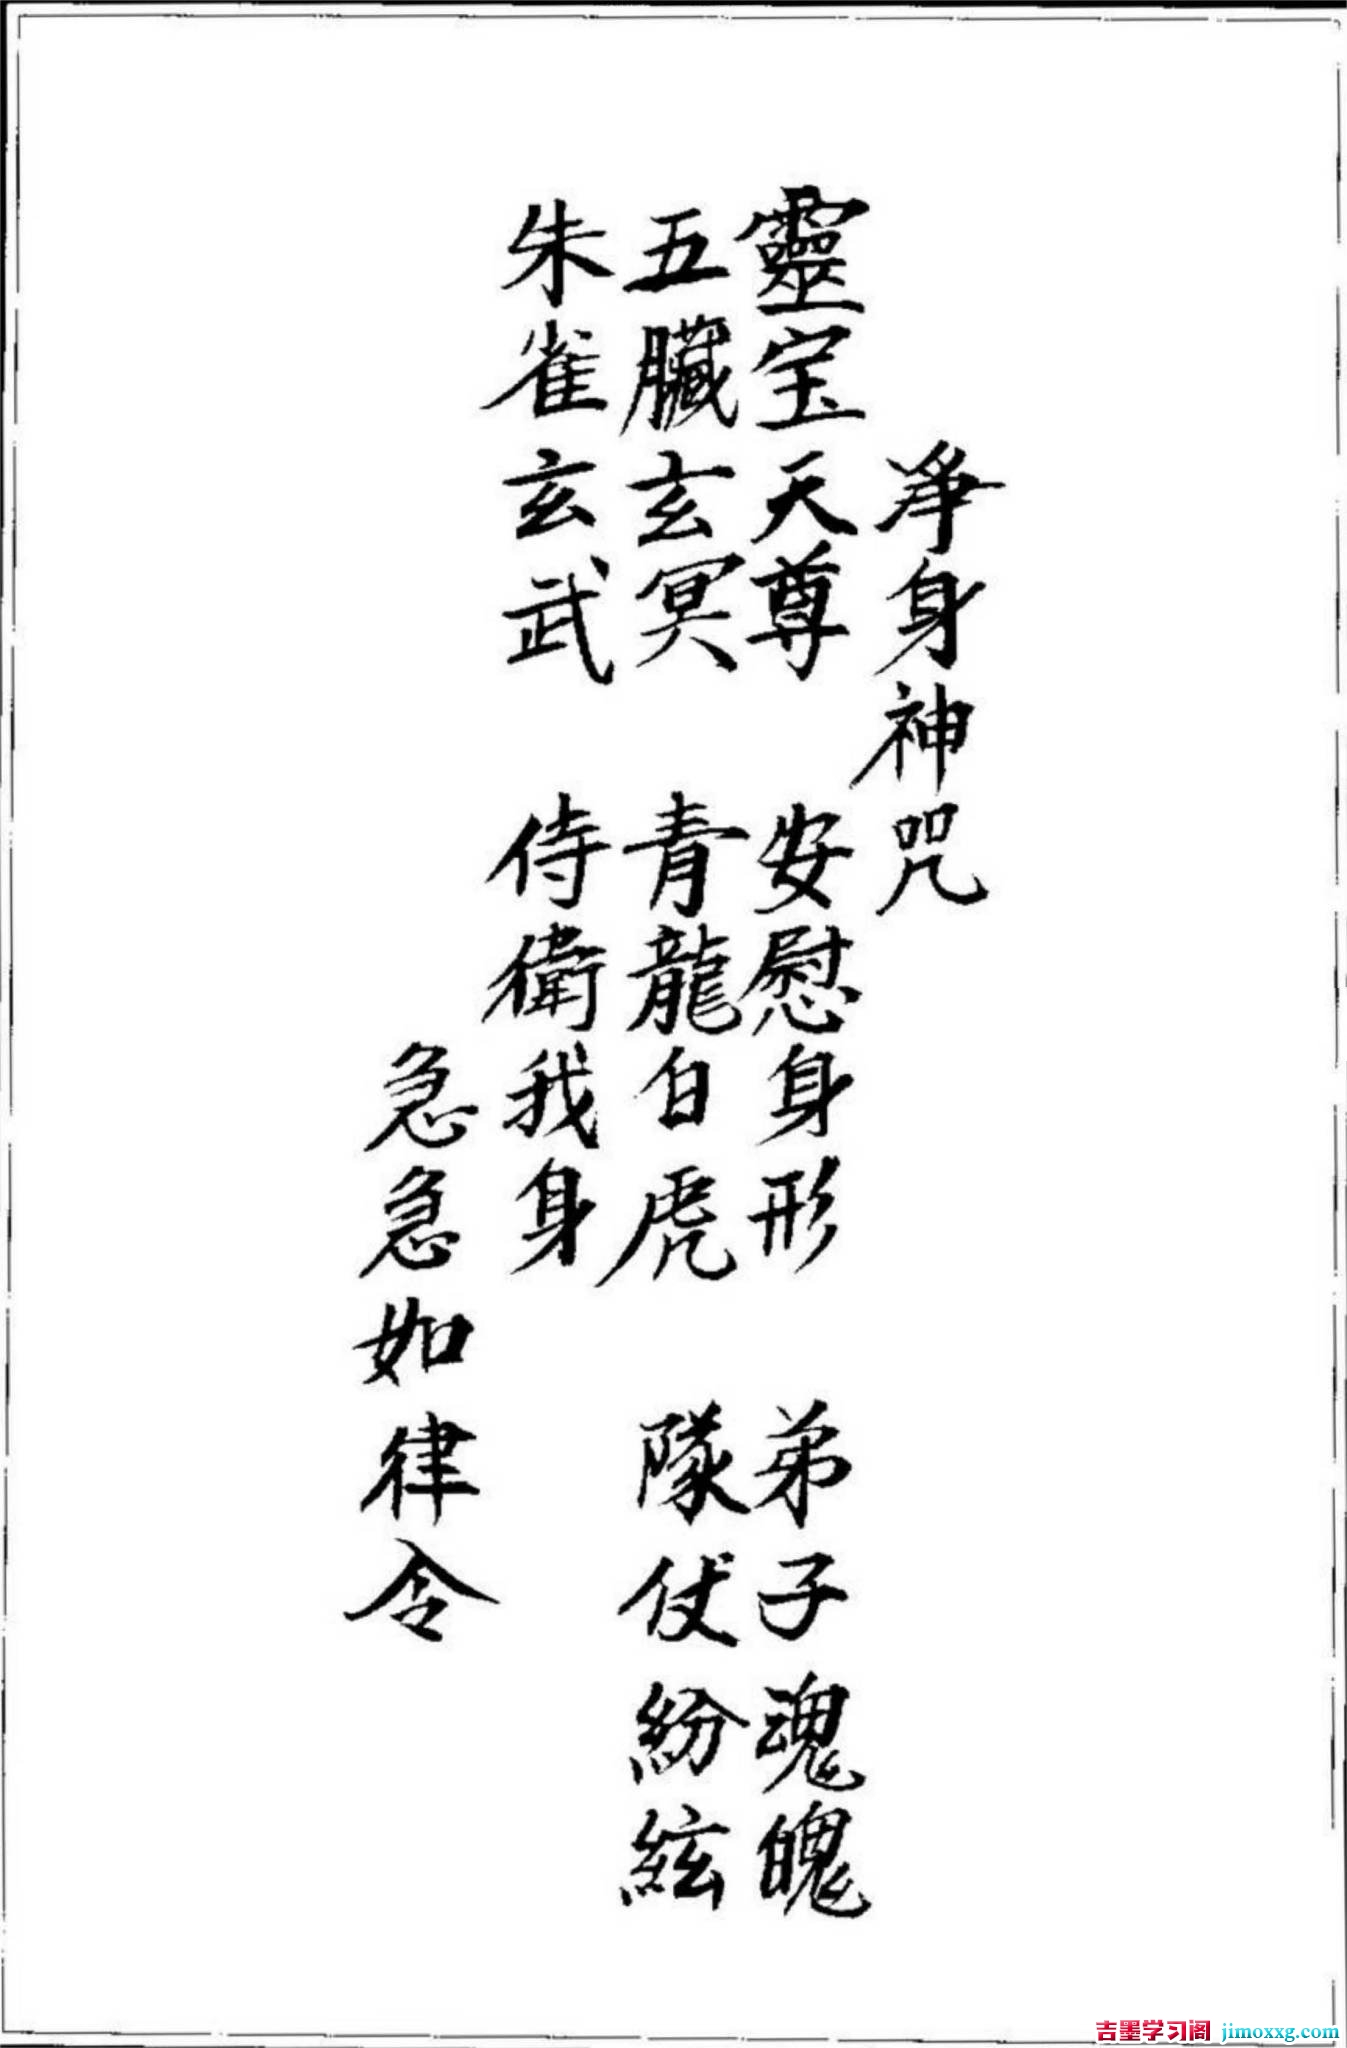 淨身神咒
靈宝天尊 安慰身形 弟子魂魄
五臟玄冥 青龍白虎 隊仗紛紜
朱雀玄武 侍衛我身
急急如律令
吉墨学习阁 jimoxxg.com